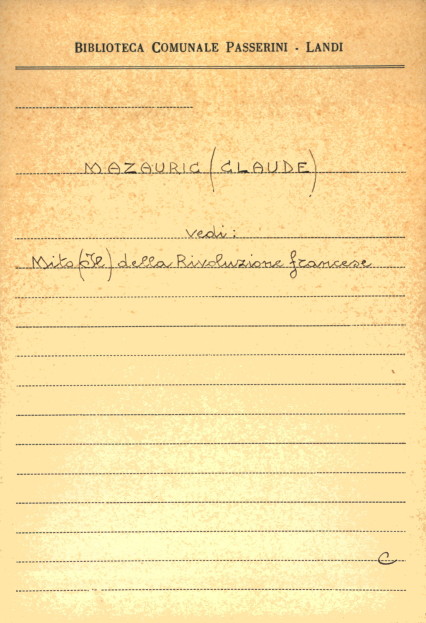 BIBLIOTECA COMUNALE PASSERINI - LANDI
MAZAURIC (CLAUDE)
vedi:
Mito (Il) della Rivoluzione francese
C